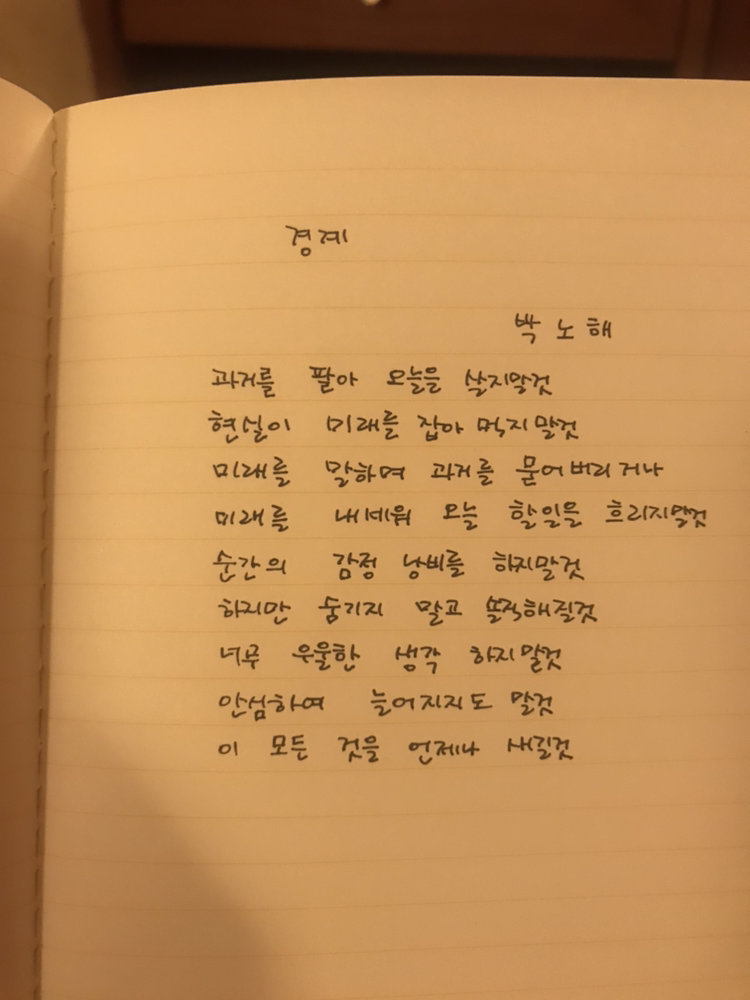 경계
박노해
과거를 팔아 오늘을 살지말것
현실이 미래를 잡아 먹지말것
미래를 말하며 과거를 묻어버리거나
미래를 내세워 오늘 할일을 흐리지말것
순간의 감정 낭비를 하지말것
하지만 숨기지 말고 솔직해질것
너무 우울한 생각 하지말것
안심하여 늘어지지도 말것
이 모든 것을 언제나 새길것